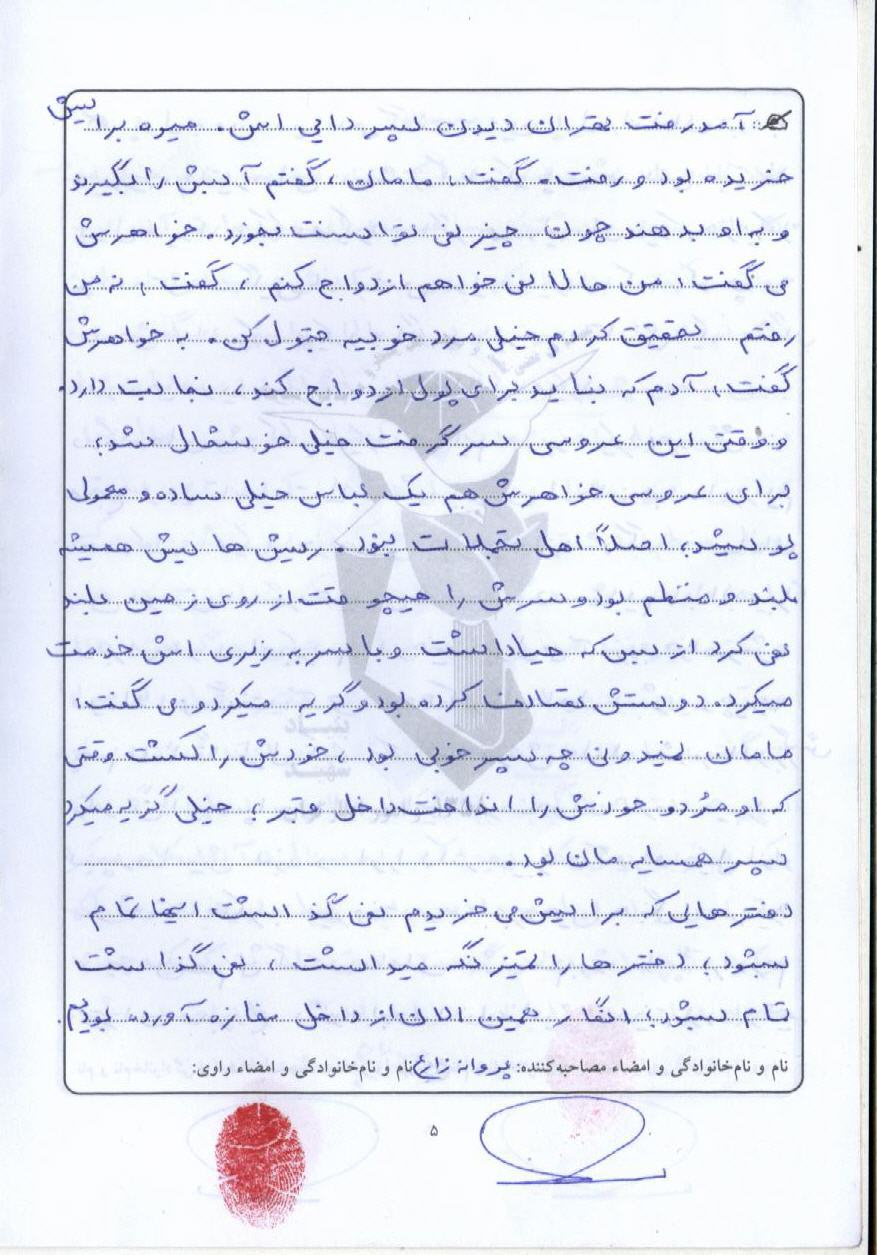 آمد رفت تهران دیدن پسر دایی اش. میوه برایش
خریده بود و رفت. گفت، مامان، گفتم آبش را بگیرند
و به او بدهند چون چیز نمی توانست بخورد. خواهرش
می گفت، من حالا نمی خواهم ازدواج کنم، گفت، نه من
رفتم تحقیق کردم خیلی مرد خوبیه قبول کن. به خواهرش
گفت، آدم که نباید برای پول ازدواج کند، نجابت دارد.
و وقتی این عروسی سر گرفت خیلی خوشحال شد،
برای عروسی خواهرش هم یک لباس خیلی ساده و معمولی
پوشید، اصلاً اهل تجملات نبود. ریش هایش همیشه
بلند و منظم بود و سرش را هیچ وقت از روی زمین بلند
نمی کرد از بس که حیا داشت و با سر به زیری اش خدمت
میکرد. دوستش تصادف کرده بود و گریه میکرد و می گفت،
مامان نمیدونی چه پسر خوبی بود، خودش را کشت وقتی
که او مُرد و خودش را انداخت داخل قبر، خیلی گریه میکرد
پسر همسایه مان بود.
دفتر هایی که برایش می خریدم نمی گذاشت اینجا تمام
بشود، دفتر ها را تمیز نگه میداشت، نمی گذاشت
تمام بشود، انگار همین الان از داخل مغازه آورده بودیم.
نام و نام‌خانوادگی و امضاء مصاحبه‌کننده: پروانه زارع نام و نام‌خانوادگی و امضاء راوی:
۵